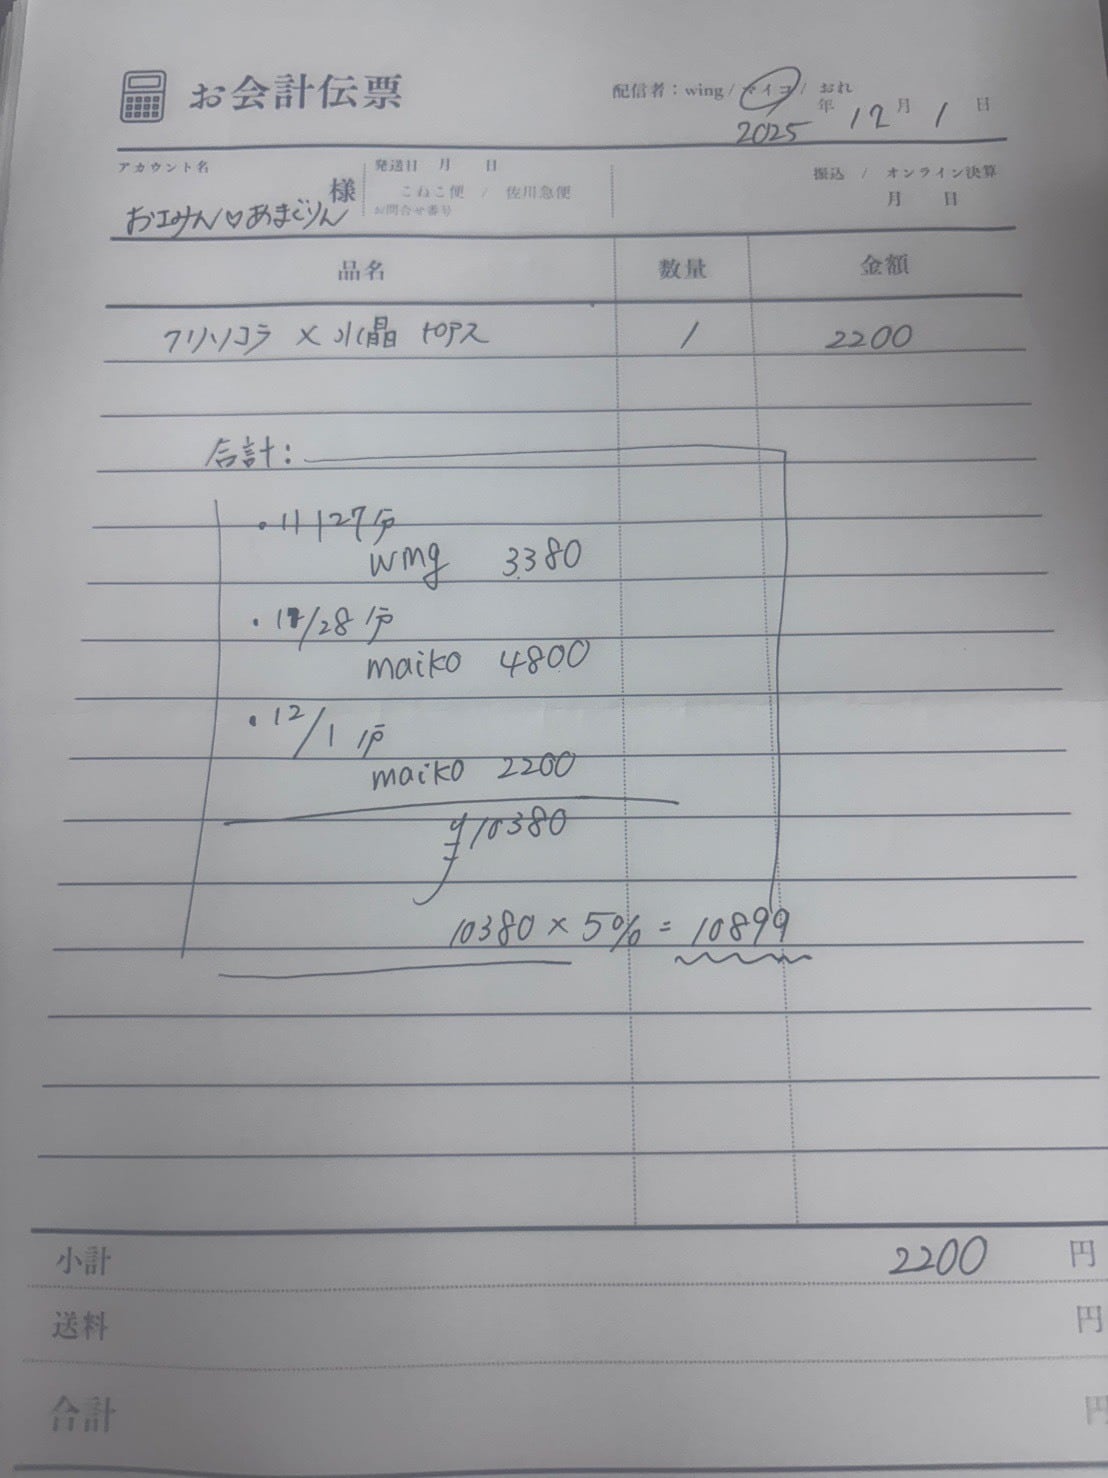 お会計伝票
配信者：wing / マイコ / おれ
2025年 12月 1日
アカウント名
おエみん♡あまぐりん 様
発送日 月 日
こねこ便 / 佐川急便
お問合せ番号
振込 / オンライン決算
月 日
品名 数量 金額
クリソコラ × 水晶 トロアス 1 2200
合計：
・11/27分
wing 3380
・11/28分
maiko 4800
・12/1分
maiko 2200
10380
10380 × 5% = 10899
小計 2200 円
送料 円
合計 円